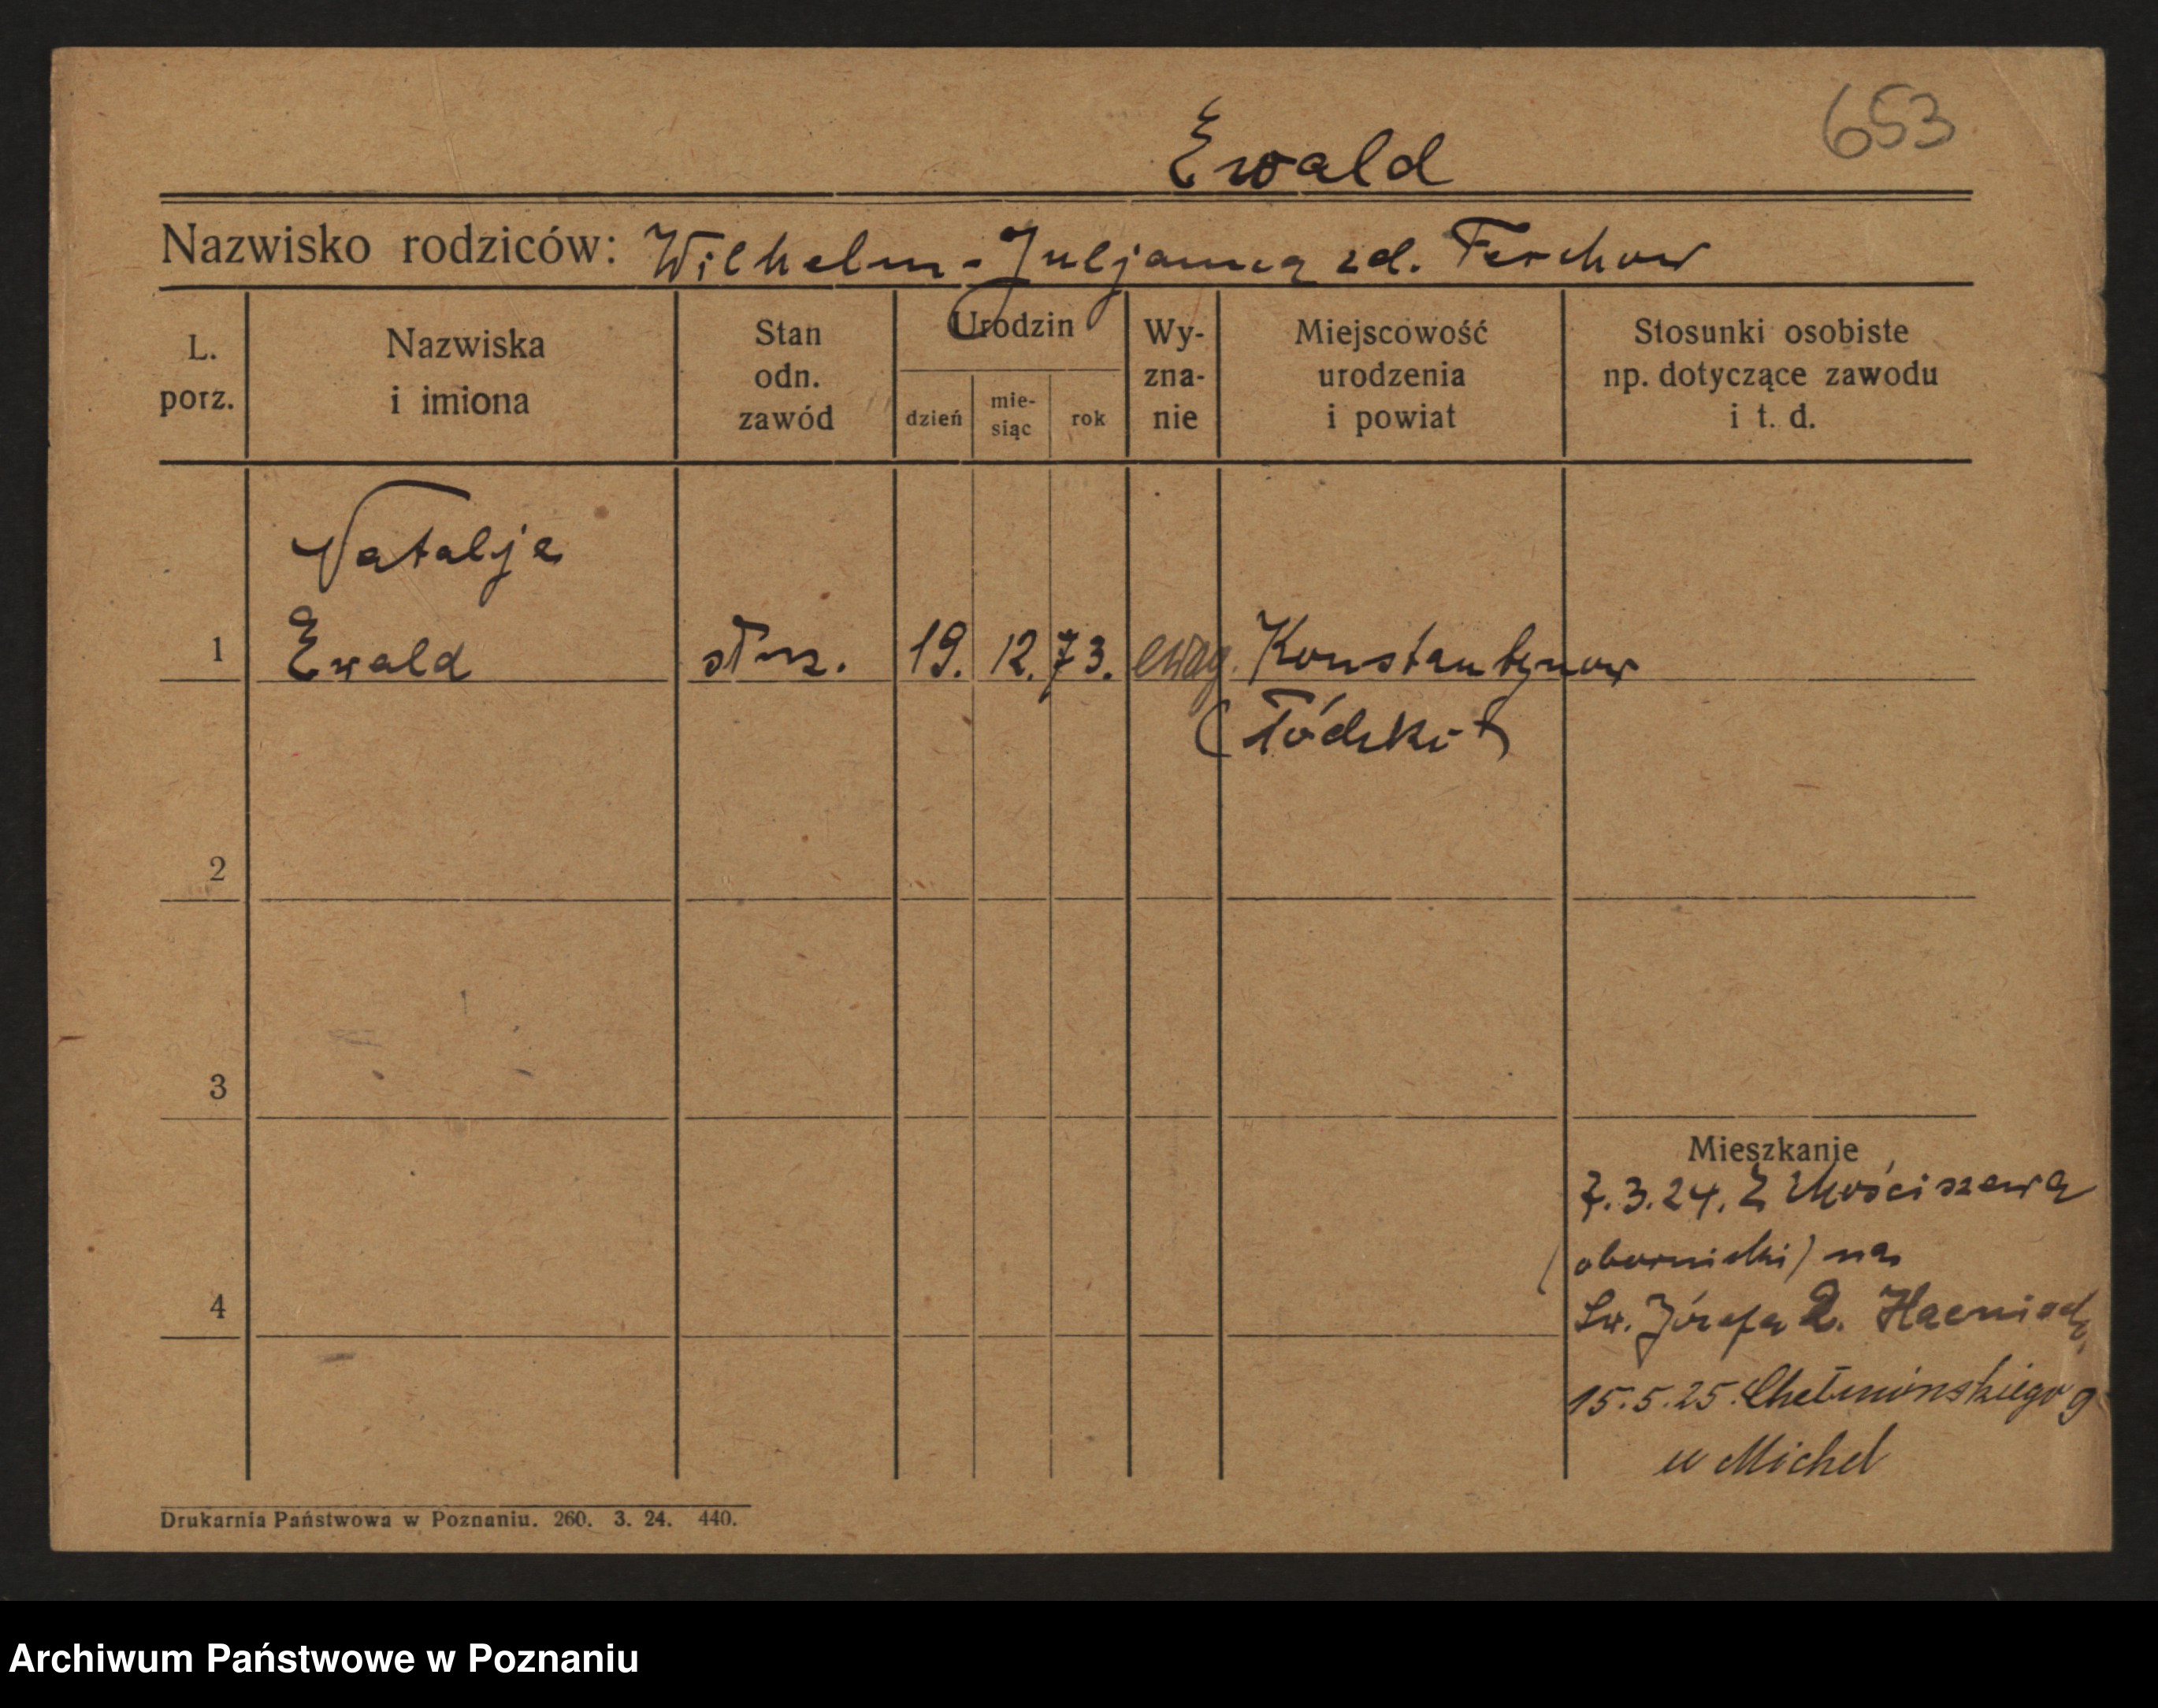 653
Ewald
Nazwisko rodziców: Wilhelm - Juljanna zd. Ferchow
L. porz.
Nazwiska i imiona
Stan odn. zawód
Urodzin
dzień
mie-siąc
rok
Wy-zna-nie
Miejscowość urodzenia i powiat
Stosunki osobiste np. dotyczące zawodu i t. d.
Natalja
1 Ewald służ. 19. 12. 73. ewag. Konstantynow
(Łódzki)
2
3
Mieszkanie
7.3.24. Z Mościszewa
(obornicki) na
4
Św. Józefa 2.
15.5.25. Chełmińskiego 9
u Michel
Drukarnia Państwowa w Poznaniu. 260. 3. 24. 440.
Archiwum Państwowe w Poznaniu